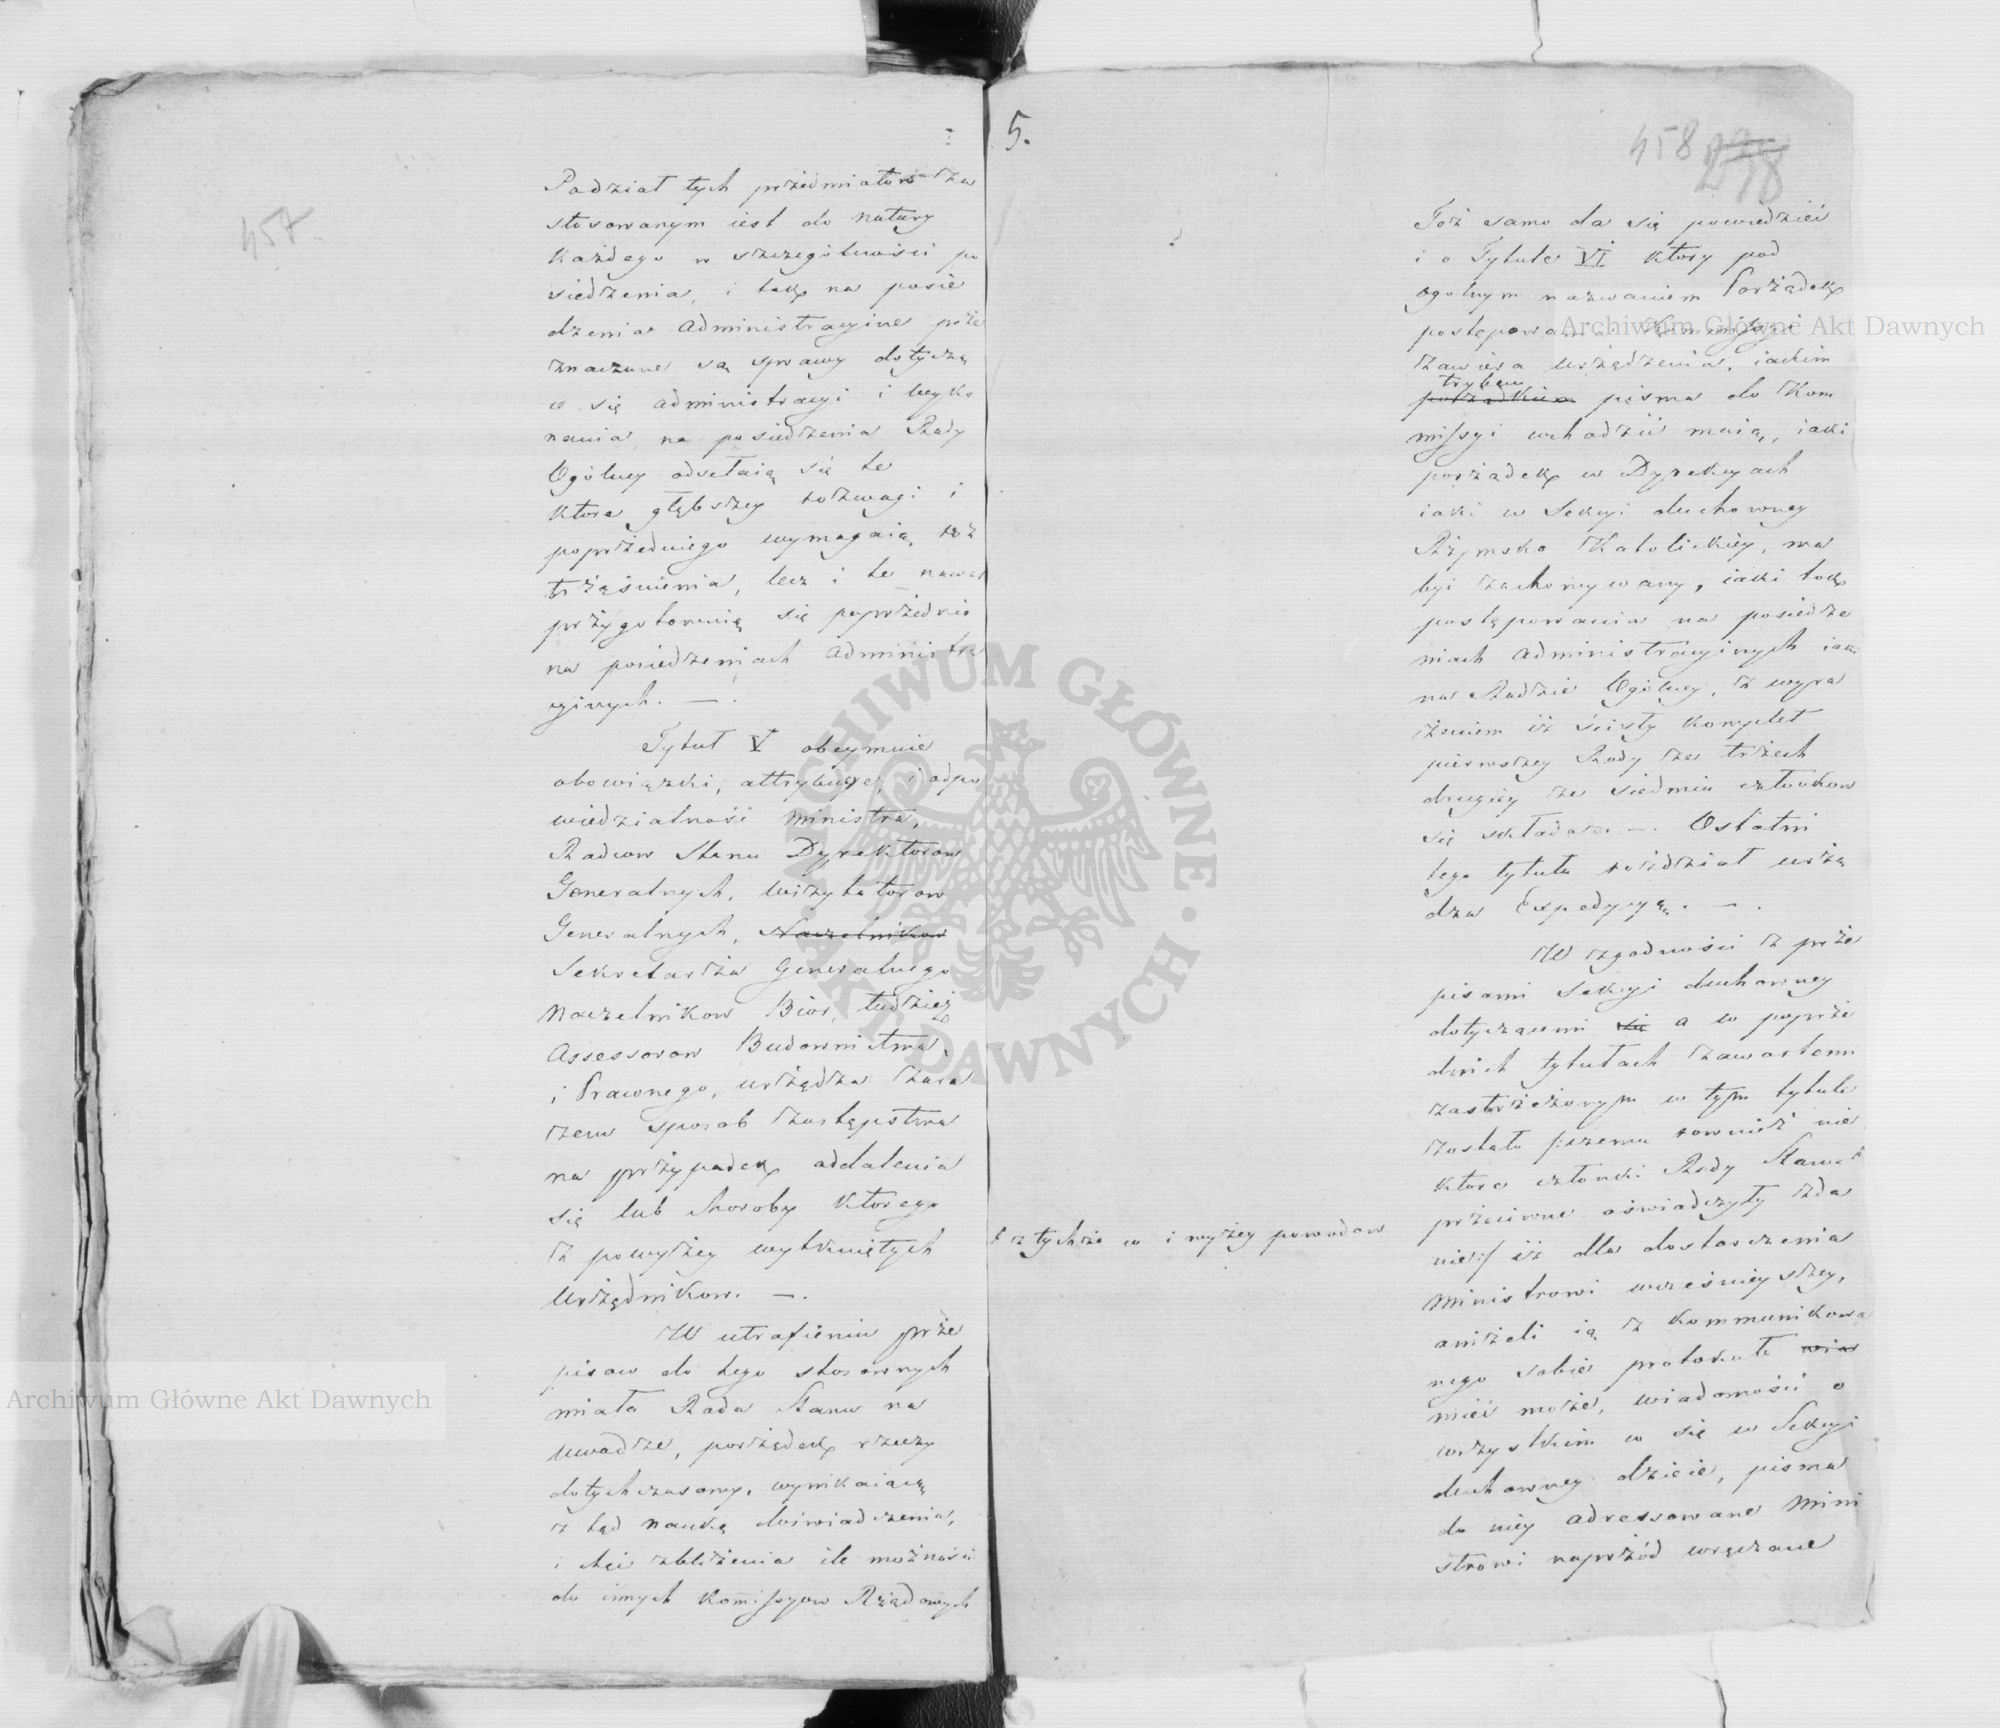 457.
Podział tych przedmiotow za
stosowanym iest do natury
Każdego w szczególności po
siedzenia, i tak na posie
dzenia Administracyine prze
znaczone są sprawy dotyczą
ce się administracyi i wyko
nania, na posiedzenia Rady
Ogólney odsełaią się te
które głębszey rozwagi i
poprzedniego wymagaią roz
trząśnienia, lecz i te nawet
przygotowuią się poprzednio
na posiedzeniach Administra
cyinych. —.
Tytuł V obeymuie
obowiązki, attrybucye, i odpo
wiedzialność Ministra,
Radcow Stanu Dyrektorow
Generalnych, Wizytatorow
Generalnych, Naczelnikow
Sekretarza Generalnego
Naczelnikow Biór, tudzież
Assessorow Budownictwa,
i Prawnego, urządza zara
zem sposob zastępstwa
na przypadek oddalenia
się lub choroby Ktorego
z powyżey wytkniętych
Urzędnikow. —.
W utrafieniu prze
pisow do tego stosownych
miała Rada Stanu na
uwadze, porządek rzeczy
dotychczasowy, wynikaiącą
z tąd naukę doświadczenia,
i chęć zbliżenia ile możności
do innych Kommissyow Rządowych
5.
458 298
Toż samo da się powiedzieć
i o Tytule VI Który pod
ogolnym nazwaniem Porządek
postępowania Kommissyi
zawiera urządzenia, iakim
trybem
porządkiem pisma do Kom
missyi wchodzić maią, iaki
porządek w Dyrekcyach
iaki w Sekcyi duchowney
Rzymsko Katolickiey, ma
być zachowywany, iaki tok
postępowania na posiedze
niach Administracyinych iaki
na Radzie Ogólney, z wyra
żeniem iż ścisły Komplet
pierwszey Rady ze trzech
drugiey ze siedmiu członkow
się składa. —. Ostatni
tego tytułu rozdział urzą
dza Expedycyą. —.
W zgodności z prze
pisami Sekcyi duchowney
dotyczącemi się a w poprze
dnich tytułach zawartemi
zastrzeżonym w tym tytule
zostało /:czemu rownież nie
które członki Rady Stanu
przeciwne oświadczyły zda
nie:/ iż dla dostarczenia
Ministrowi wcześnieyszey,
aniżeli ią z Kommunikowa
nego sobie protokułu wia
mieć może, wiadomości o
wszystkim co się w Sekcyi
duchowney dzieie, pisma
do niey adressowane Mini
strowi naprzód wręczane
z tychże co i wyżey powodow
Archiwum Główne Akt Dawnych
Archiwum Główne Akt Dawnych
ARCHIWUM GŁÓWNE · AKT DAWNYCH ·